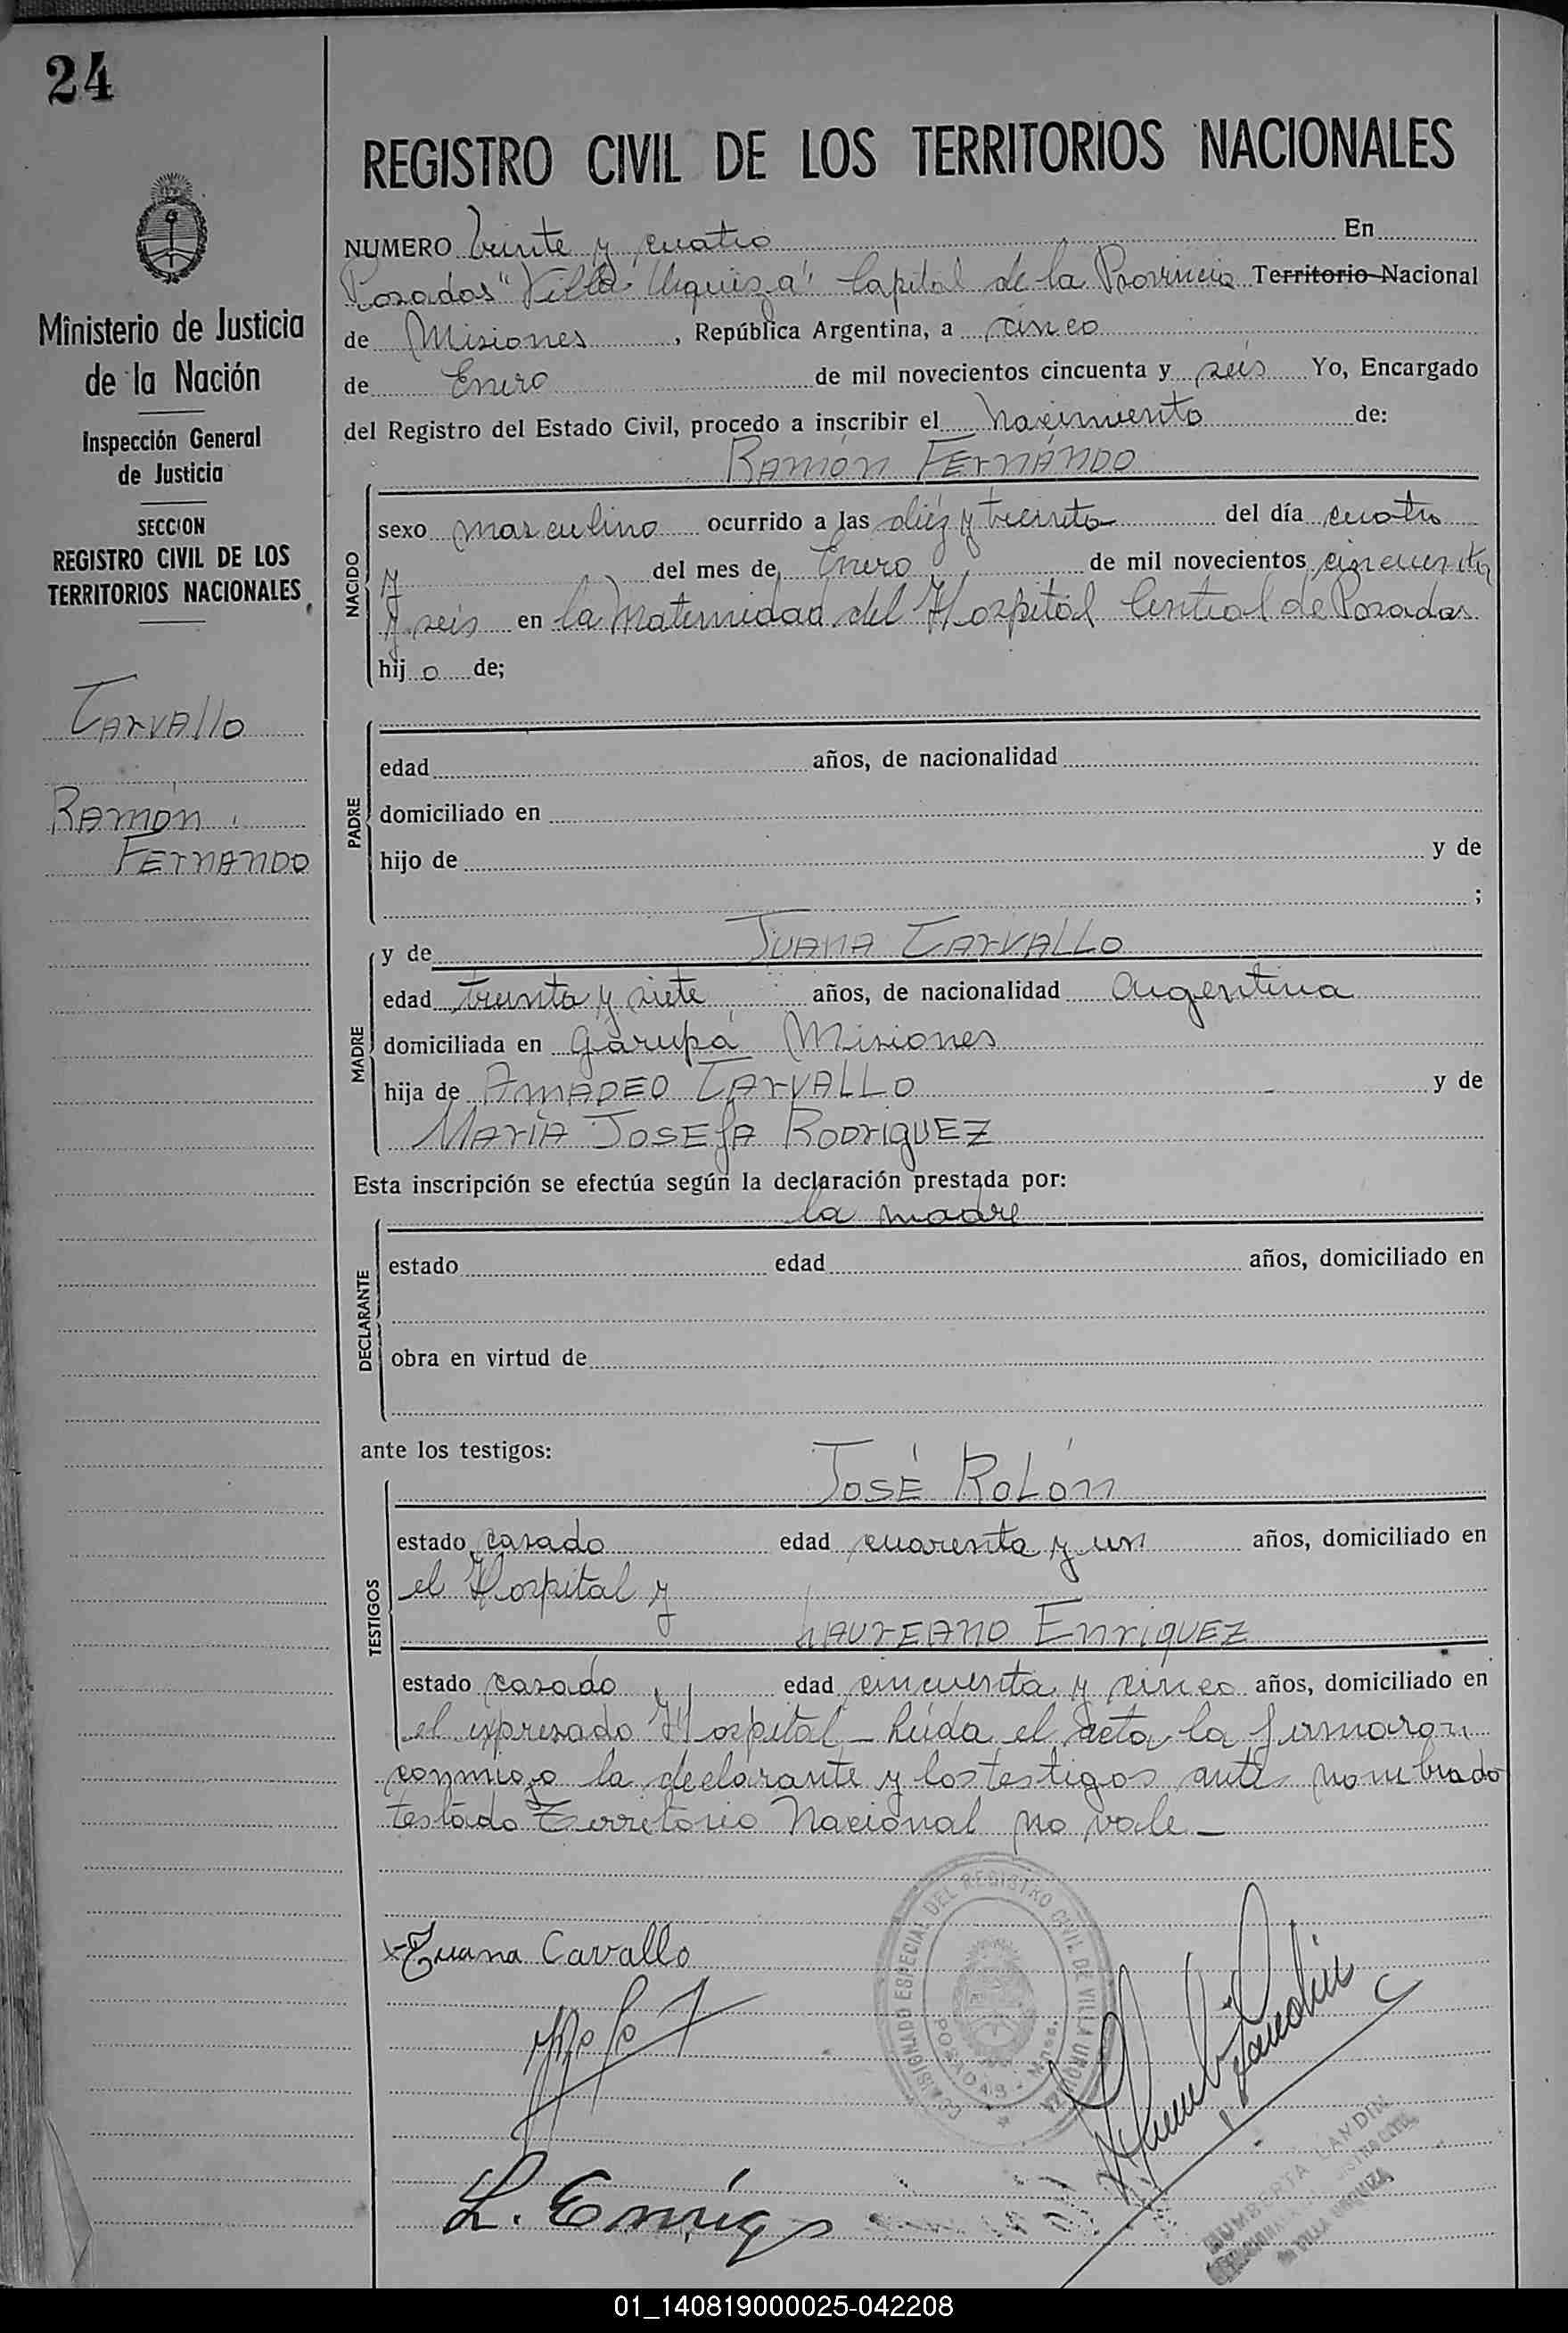 24
REGISTRO CIVIL DE LOS TERRITORIOS NACIONALES
Ministerio de Justicia
de la Nación
Inspección General
de Justicia
SECCION
REGISTRO CIVIL DE LOS
TERRITORIOS NACIONALES
Carvallo
Ramón
Fernando
NUMERO Veinte y cuatro En
Posadas "Villa Urquiza" Capital de la Provincia Territorio Nacional
de Misiones, República Argentina, a cinco
de Enero de mil novecientos cincuenta y seis Yo, Encargado
del Registro del Estado Civil, procedo a inscribir el nacimiento de:
Ramón Fernándo
NACIDO
sexo masculino ocurrido a las diéz y treinta del día cuatro
y del mes de Enero de mil novecientos cincuenta
y seis en la Maternidad del Hospital Central de Posadas
hijo de;
PADRE
edad años, de nacionalidad
domiciliado en
hijo de y de
;
MADRE
y de Juana Carvallo
edad treinta y siete años, de nacionalidad argentina
domiciliada en Garupá Misiones
hija de Amadeo Carvallo y de
María Josefa Rodriguez
Esta inscripción se efectúa según la declaración prestada por:
la madre
DECLARANTE
estado edad años, domiciliado en
obra en virtud de
ante los testigos:
José Rolón
TESTIGOS
estado casado edad cuarenta y un años, domiciliado en
el Hospital y
Laureano Enriquez
estado casado edad cincuenta y cinco años, domiciliado en
el expresado Hospital - Leída el acta la firmaron
conmigo la declarante y los testigos ante nombrado
testado Territorio Nacional no vale -
Juana Cavallo
COMISIONADO ESPECIAL DEL REGISTRO CIVIL DE VILLA URQUIZA
POSADAS - Mnes.
L. Enríqz
HUMBERTA LANDIN
VILLA URQUIZA
01_140819000025-042208